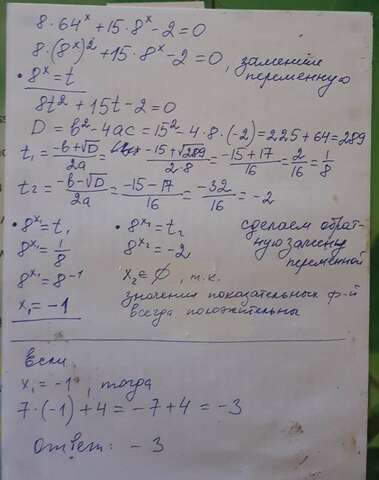 8·64ˣ + 15·8ˣ - 2 = 0
8·(8ˣ)² + 15·8ˣ - 2 = 0, заменим переменную
• 8ˣ = t
8t² + 15t - 2 = 0
D = b² - 4ac = 15² - 4·8·(-2) = 225 + 64 = 289
t₁ = (-b + √D)/2a = (-15 + √289)/(2·8) = (-15 + 17)/16 = 2/16 = 1/8
t₂ = (-b - √D)/2a = (-15 - 17)/16 = -32/16 = -2
• 8ˣ¹ = t₁ • 8ˣ² = t₂ сделаем обрат-
8ˣ¹ = 1/8 8ˣ² = -2 ную замену
8ˣ¹ = 8⁻¹ x₂ = ∅, т.к. переменной
x₁ = -1 значения показательных ф-й
всегда положительны
Если
x₁ = -1, тогда
7·(-1) + 4 = -7 + 4 = -3
Ответ: - 3